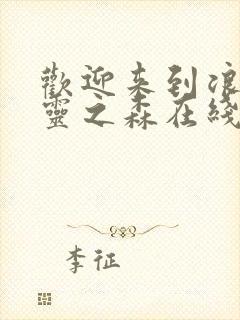 歡迎来到浪
靈之森在綫
李征